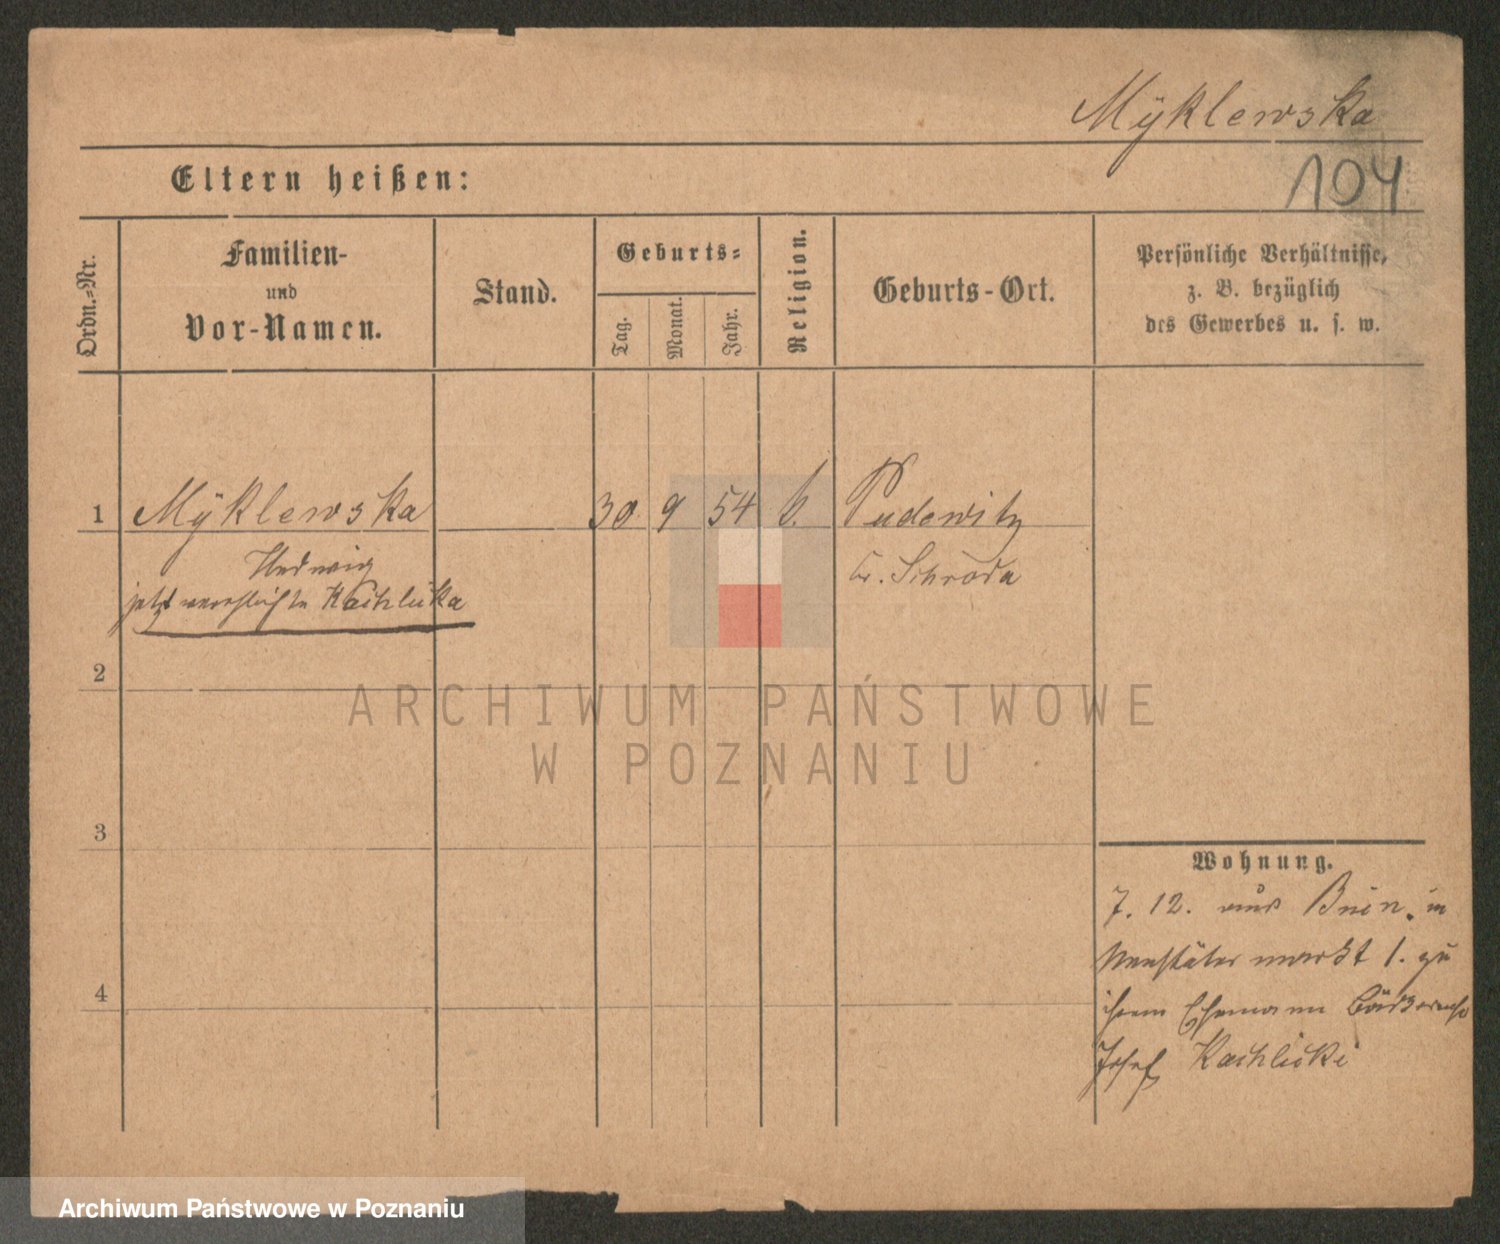 Myklewska
104
Eltern heißen:
Ordn.-Nr.
Familien-
und
Vor-Namen.
Stand.
Geburts-
Tag.
Monat.
Jahr.
Religion.
Geburts-Ort.
Persönliche Verhältnisse,
z. B. bezüglich
des Gewerbes u. s. w.
1 Mÿklewska 30 9 54 k. Pudewitz
Hedwig Kr. Schroda
jetzt verehelichte Kachlicka
2
3
4
Wohnung.
7. 12. aus Bnin. in
Neustädter markt 1. zu
ihrem Ehemann
Josef Kachlicki
ARCHIWUM PAŃSTWOWE
W POZNANIU
Archiwum Państwowe w Poznaniu